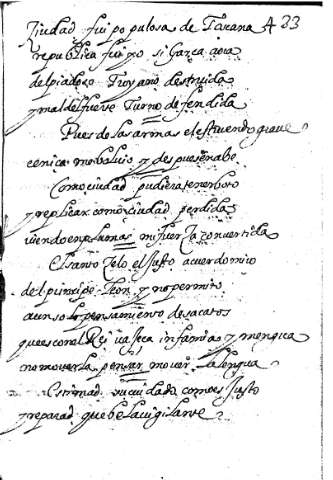 Ziudad fui populosa de Tascana A 33
republica fui yo si Garça aora
del piadoso Troyano destruida
y mal del fuerte Turno defendida
Pues de las armas el estruendo graue
ceniça me boluio y despues en abe
Como ciudad pudiera tener boto
y replicar como ciudad perdida
uiendo en plumas mi fuerça conuertida
El santo Zelo el justo acuerdo mio
del principe Leon y no permito
aun solo pensamiento desacatos
que es con el Rei uajeça infamia y mengua
no mouerla pensar mouer la lengua
Estimad su cuidado como es justo
y reparad que bela uigilante